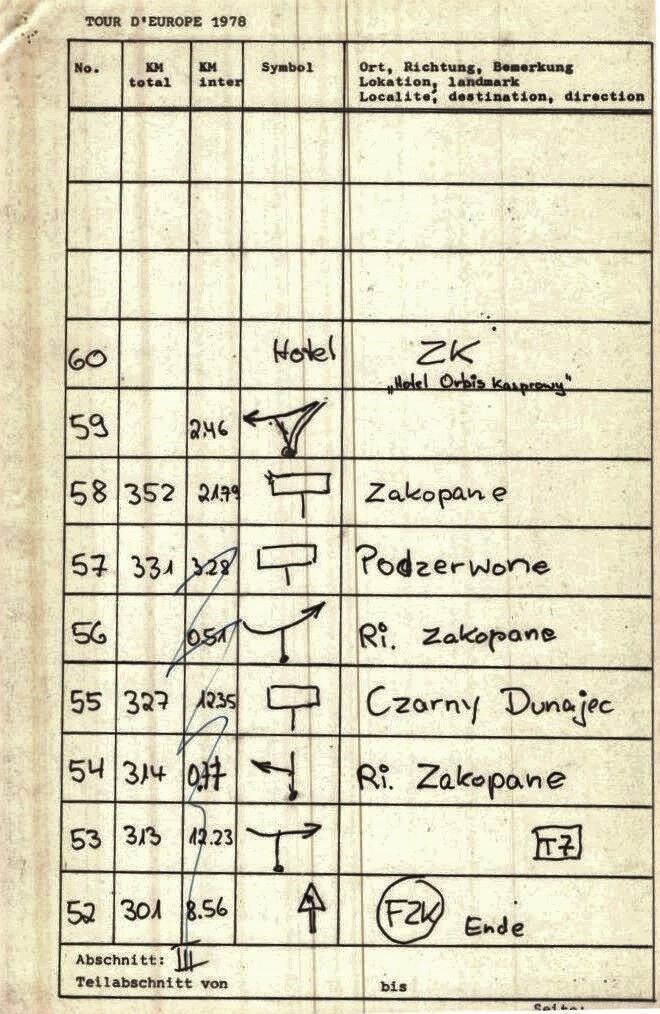 TOUR D'EUROPE 1978
No. KM total KM inter Symbol Ort, Richtung, Bemerkung
Lokation, landmark
Localite, destination, direction
60 Hotel ZK
„Hotel Orbis Kasprowy"
59 2.46
58 352 21.79 Zakopane
57 331 3.28 Podzerwone
56 0.51 Ri. Zakopane
55 327 12.35 Czarny Dunajec
54 314 0.77 Ri. Zakopane
53 313 12.23 T7
52 301 8.56 FZK Ende
Abschnitt: III
Teilabschnitt von bis
Seite: